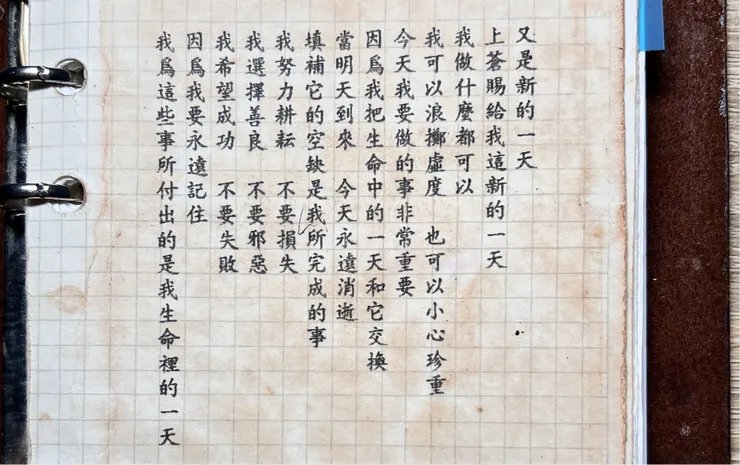 又是新的一天
上蒼賜給我這新的一天
我做什麼都可以
我可以浪擲虛度　也可以小心珍重
今天我要做的事非常重要
因爲我把生命中的一天和它交換
當明天到來　今天永遠消逝
填補它的空缺是我所完成的事
我努力耕耘　不要損失
我選擇善良　不要邪惡
我希望成功　不要失敗
因爲我要永遠記住
我爲這些事所付出的是我生命裡的一天